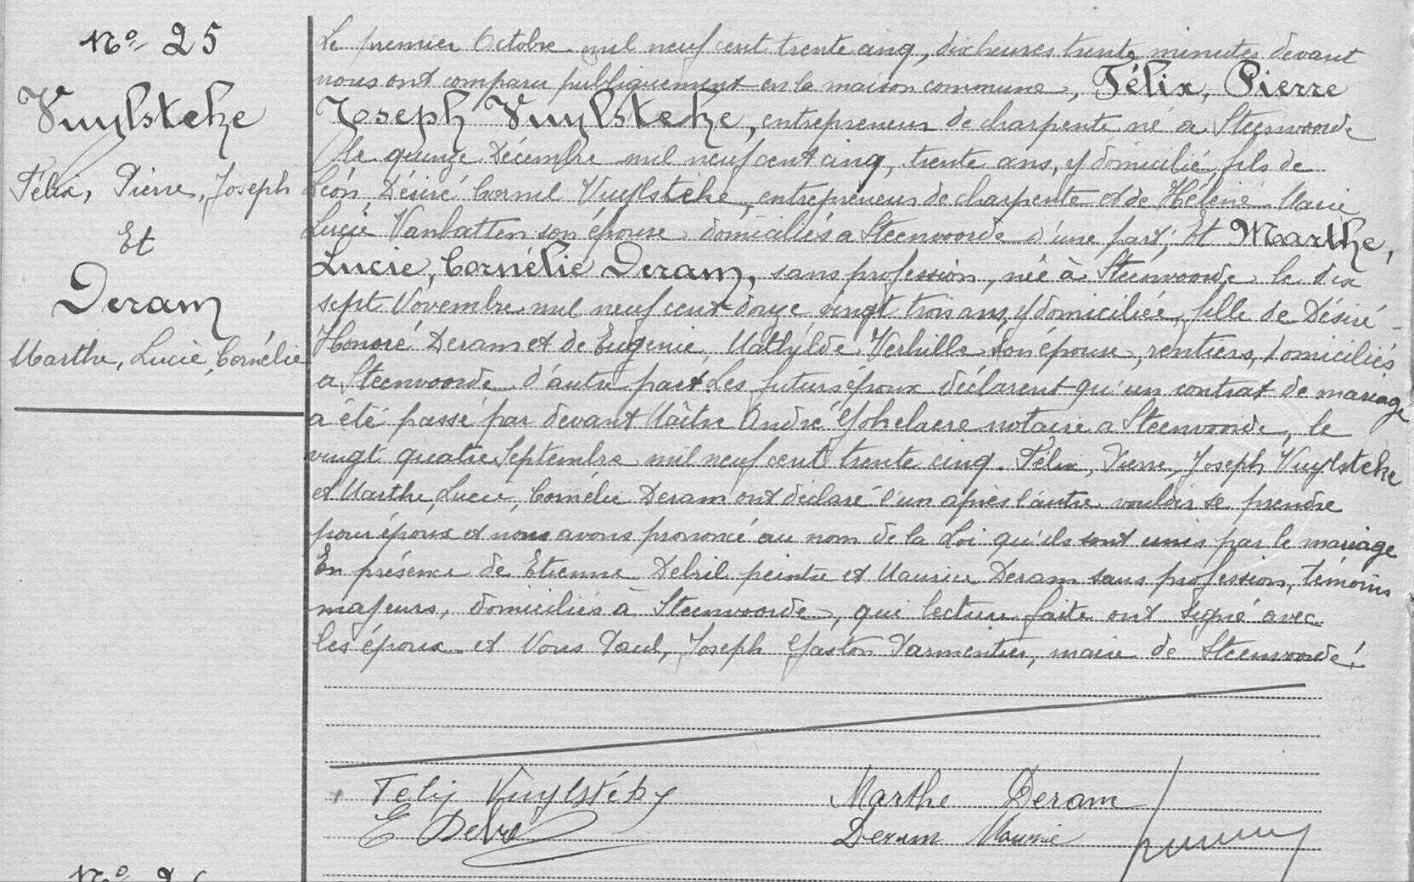 No 25
Vuylsteke
Félix, Pierre, Joseph
Et
Deram
Marthe, Lucie, Cornélie
Le premier Octobre mil neuf cent trente cinq, dix heures trente minutes devant
nous ont comparu publiquement en la maison commune, Félix, Pierre
Joseph Vuylsteke, entrepreneur de charpente né à Steenvoorde
le quinze Décembre mil neuf cent cinq, trente ans, y domicilié, fils de
Léon Désiré Cornil Vuylsteke, entrepreneur de charpente et de Hélène Marie
Lucie Vanbatten son épouse domiciliés à Steenvoorde d'une part, Et Marthe,
Lucie, Cornélie Deram, sans profession, née à Steenvoorde le dix
sept Novembre mil neuf cent douze vingt trois ans, y domiciliée, fille de Désiré
Honoré Deram et de Eugénie, Mathylde Verhille son épouse, rentiers, domiciliés
a Steenvoorde d'autre part Les futurs époux déclarent qu'un contrat de mariage
a été passé par devant Maître André notaire a Steenvoorde, le
vingt quatre Septembre mil neuf cent trente cinq. Félix, Pierre, Joseph Vuylsteke
et Marthe, Lucie, Cornélie Deram ont déclaré l'un après l'autre vouloir se prendre
pour époux et nous avons prononcé au nom de la Loi qu'ils sont unis par le mariage
En présence de Etienne Debril peintre et Maurice Deram sans profession, témoins
majeurs, domiciliés à Steenvoorde, qui lecture faite ont signé avec
les époux et Nous Paul, Joseph Gaston Parmentier, maire de Steenvoorde.
Felix Vuylstéke
Marthe Deram
E Debril
Deram Maurice